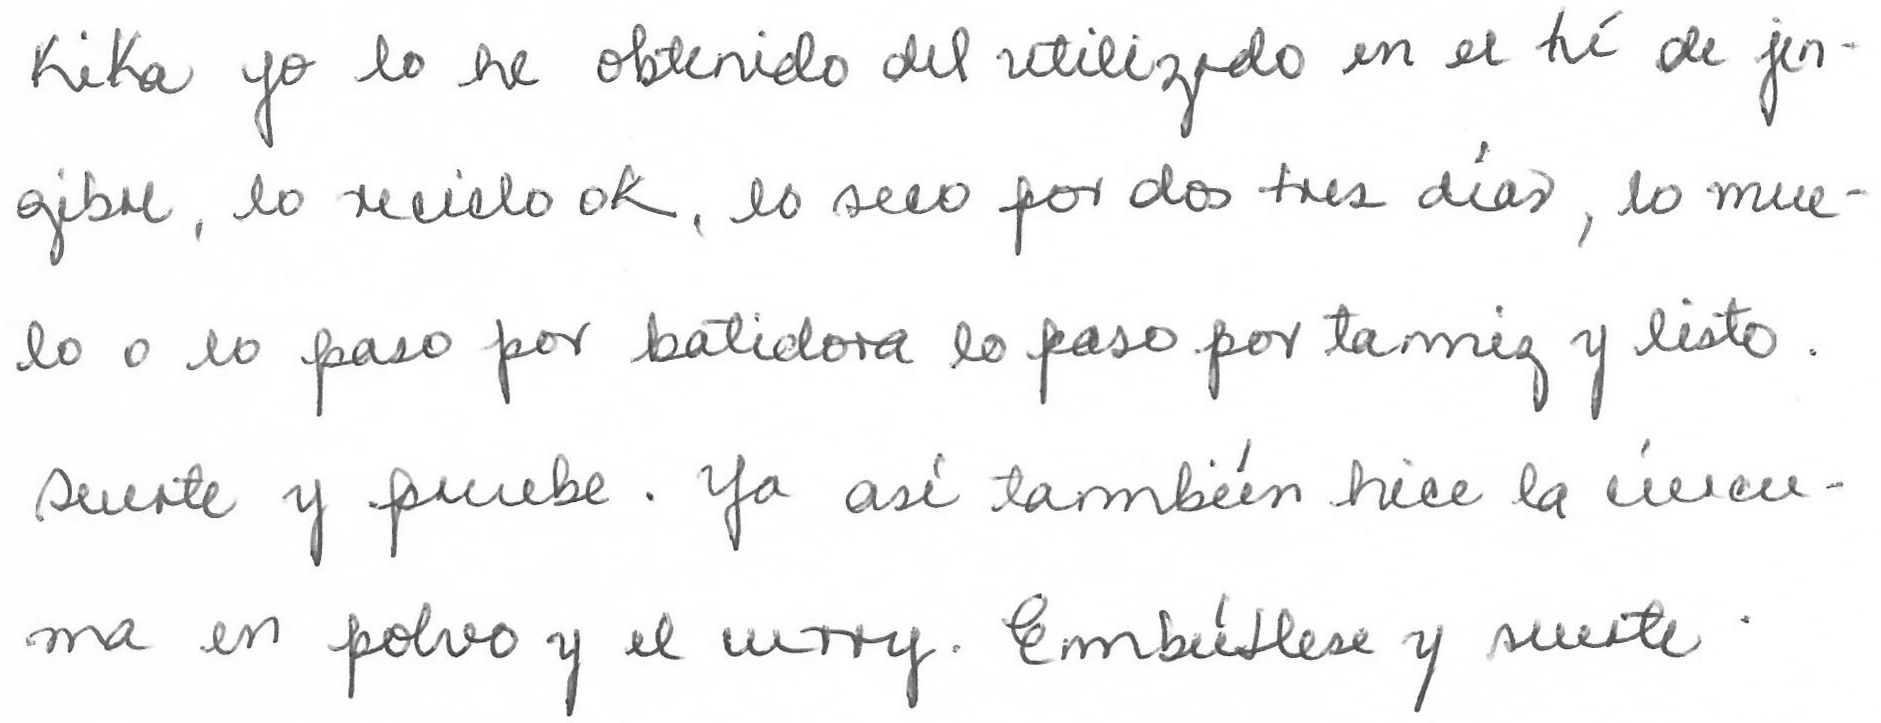 Kika yo lo he obtenido del utilizado en el té de jen-
gibre, lo reciclo ok, lo seco por dos tres días, lo mue-
lo o lo paso por batidora lo paso por tamiz y listo.
suerte y pruebe. Ya así también hice la cúrcu-
ma en polvo y el curry. Embúllese y suerte.